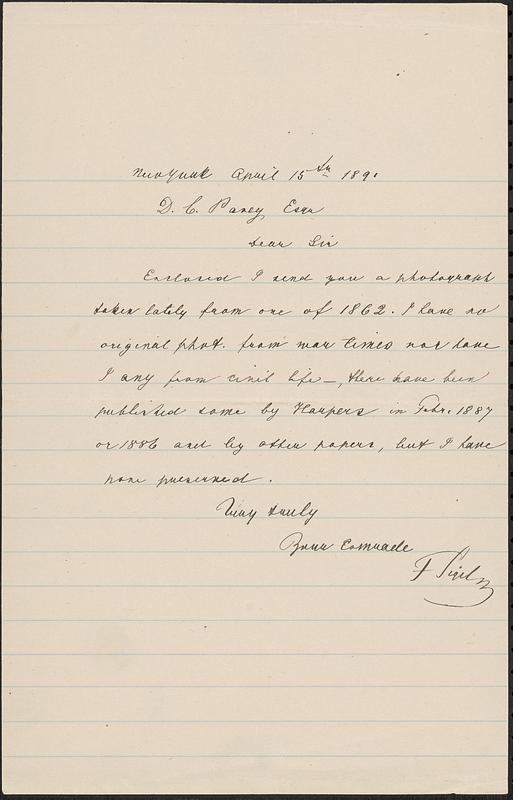 New York April 15th 1890
D. C. Pavey, Esqu
Dear Sir
Enclosed I send you a photograph
taken lately from one of 1862. I have no
original phot. from war times nor have
I any from civil life –, there have been
published some by Harpers in Febr. 1887
or 1886 and by other papers, but I have
none preserved.
Very truly
Your Comrade
F Sigel